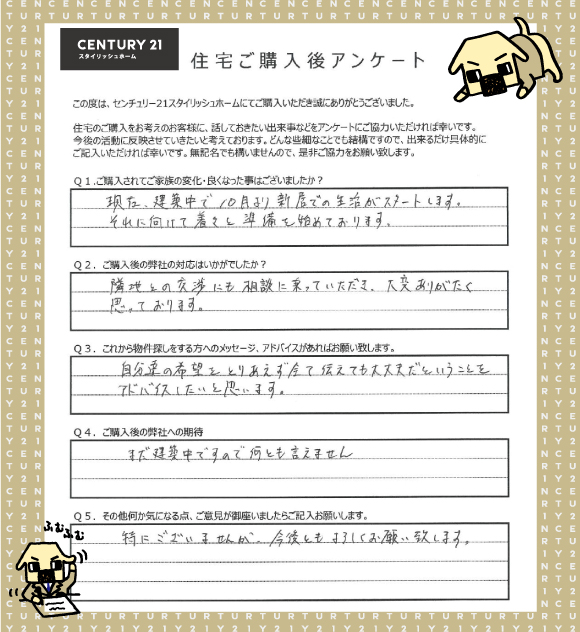 CENTURY 21
スタイリッシュホーム
住宅ご購入後アンケート
この度は、センチュリー21スタイリッシュホームにてご購入いただき誠にありがとうございました。
住宅のご購入をお考えのお客様に、話しておきたい出来事などをアンケートにご協力いただければ幸いです。
今後の活動に反映させていきたいと考えております。どんな些細なことでも結構ですので、出来るだけ具体的に
ご記入いただければ幸いです。無記名でも構いませんので、是非ご協力をお願い致します。
Q1.ご購入されてご家族の変化・良くなった事はございましたか？
現在、建築中で10月より新居での生活がスタートします。
それに向けて着々と準備を始めております。
Q2．ご購入後の弊社の対応はいかがでしたか？
隣地との交渉にも相談に乗っていただき、大変ありがたく
思っております。
Q3．これから物件探しをする方へのメッセージ、アドバイスがあればお願い致します。
自分達の希望をとりあえず全て伝えても大丈夫だということを
アドバイスしたいと思います。
Q4．ご購入後の弊社への期待
まだ建築中ですので何とも言えません
Q5．その他何か気になる点、ご意見が御座いましたらご記入お願いします。
特にございませんが、今後ともよろしくお願い致します。
ふむふむ